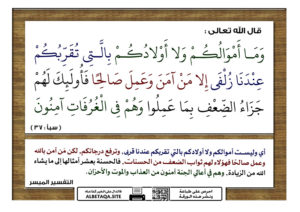 قال الله تعالى :
وَمَا أَمْوَالُكُمْ وَلَا أَوْلَادُكُمْ بِالَّتِي تُقَرِّبُكُمْ
عِنْدَنَا زُلْفَى إِلَّا مَنْ آمَنَ وَعَمِلَ صَالِحًا فَأُولَئِكَ لَهُمْ
جَزَاءُ الضِّعْفِ بِمَا عَمِلُوا وَهُمْ فِي الْغُرُفَاتِ آمِنُونَ
(سبأ: ٣٧)
أي وليست أموالكم ولا أولادكم بالتي تقربكم عندنا قربى، وترفع درجاتكم، لكن مَن آمن بالله
وعمل صالحًا فهؤلاء لهم ثواب الضعف من الحسنات، فالحسنة بعشر أمثالها إلى ما يشاء
الله من الزيادة، وهم في أعالي الجنة آمنون من العذاب والموت والأحزان.
التفسير الميسر
احرص على طباعة
ونشر هذه الورقة
ALBETAQA.SITE